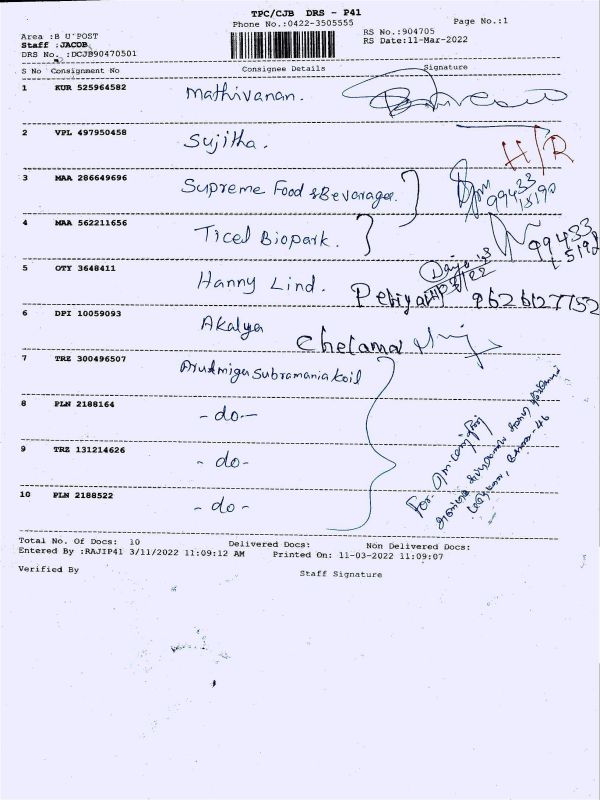 TPC/CJB DRS - P41
Phone No.:0422-3505555
Page No.:1
Area :B U'POST
RS No.:904705
Staff :JACOB
RS Date:11-Mar-2022
DRS No. :DCJB90470501
S No Consignment No Consignee Details Signature
1 KUR 525964582 Mathivanan.
2 VPL 497950458 Sujitha.
H/R
3 MAA 286649696 Supreme Food & Bevarages.
99433
15192
4 MAA 562211656 Ticel Biopark.
99433
15192
5 OTY 3648411 Hanny Lind.
9626127752
6 DPI 10059093 Akalya
Chelamal
7 TRZ 300496507 Arudmigu Subramania Koil
8 PLN 2188164 - do -
9 TRZ 131214626 - do -
10 PLN 2188522 - do -
For.
Total No. Of Docs: 10 Delivered Docs: Non Delivered Docs:
Entered By :RAJIP41 3/11/2022 11:09:12 AM Printed On: 11-03-2022 11:09:07
Verified By Staff Signature